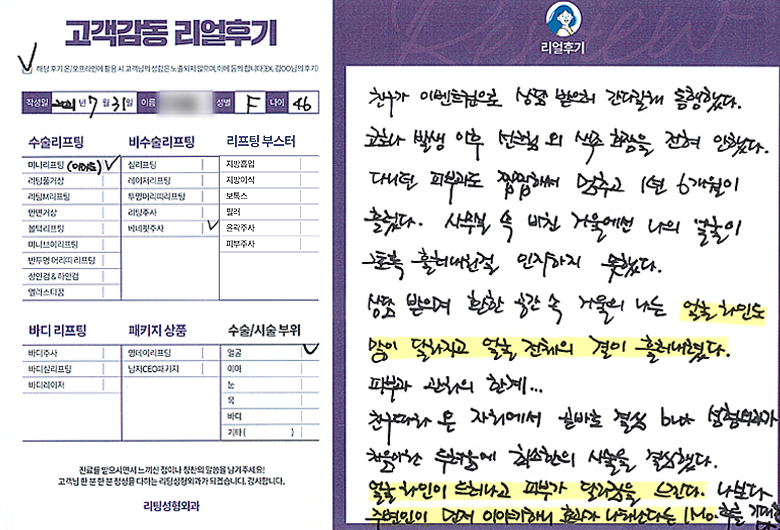 고객감동 리얼후기
해당 후기 온/오프라인에 활용 시 고객님의 성함은 노출되지 않으며, 이에 동의 합니다(EX. 김OO님의 후기)
작성일 2021 년 7 월 31 일 이름 성별 F 나이 46
수술리프팅 비수술리프팅 리프팅 부스터
미니리프팅 (이마) 실리프팅 지방흡입
리팅풀거상 레이저리프팅 지방이식
리팅M리프팅 투명머리띠리프팅 보톡스
안면거상 리팅주사 필러
볼턱리프팅 베네핏주사 윤곽주사
미니브이리프팅 피부주사
반투명 머리띠 리프팅
상안검 & 하안검
엘러스티꿈
바디 리프팅 패키지 상품 수술/시술 부위
바디주사 영데이리프팅 얼굴
바디실리프팅 남자CEO패키지 이마
바디레이저 눈
목
바디
기타 ( )
진료를 받으시면서 느끼신 점이나 칭찬의 말씀을 남겨주세요!
고객님 한 분 한 분 정성을 다하는 리팅성형외과가 되겠습니다. 감사합니다.
리팅성형외과
Review
리얼후기
친구가 이벤트컴으로 상담 받으러 간다길래 동행했다.
코로나 발생 이후 선크림 외 색조 화장을 전혀 안했다.
다니던 피부과도 찝찝해서 멈추고 1년 6개월이
흘렀다. 사무실 속 비친 거울에선 나의 얼굴이
그토록 흘러내린걸 인지하지 못했다.
상담 받으며 환한 공간 속 거울의 나는 얼굴 라인도
많이 달라지고 얼굴 전체의 결이 흘러내렸다.
피부과 관리의 한계...
친구따라 온 자리에서 곧바로 결심 but 성형외과가
처음이란 두려움에 최소한의 시술을 결심했다.
얼굴 라인이 드러나고 피부가 달라짐을 느낀다. 나보다
주변인이 먼저 이야기하니 효과가 나타난다는 1Mo. 후를 기대